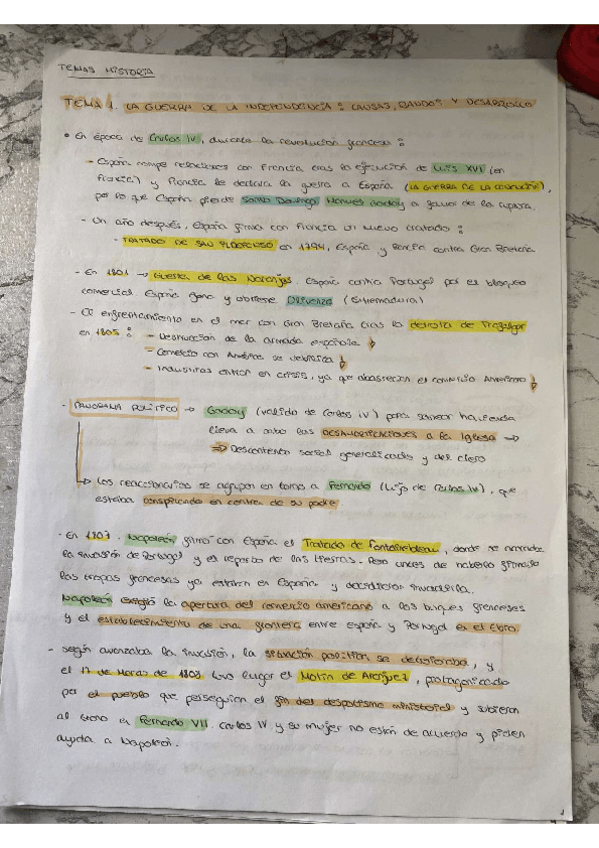 TEMAS HISTORIA
TEMA 1. LA GUERRA DE LA INDEPENDENCIA: CAUSAS, BANDOS Y DESARROLLO
• En época de Carlos IV, durante la revolución francesa:
- España rompe relaciones con Francia tras la ejecución de Luis XVI (en
Francia) y Francia le declara la guerra a España (LA GUERRA DE LA CONVENCIÓN),
por lo que España pierde Santo Domingo. Manuel Godoy a favor de la
- Un año después, España firma con Francia un nuevo tratado:
- TRATADO DE SAN ILDEFONSO en 1794, España y Francia contra Gran Bretaña
- En 1801 → Guerra de las Naranjas. España contra Portugal por el bloqueo
comercial. España gana y obtiene Olivenza (Extremadura)
- enfrentamiento en el mar con Gran Bretaña tras la derrota de Trafalgar
en 1805:
- Destrucción de la armada española ↓
- Comercio con América se debilita ↓
- Industrias entran en crisis, ya que abastecían el comercio Americano ↓
- PANORAMA POLÍTICO → Godoy (valido de Carlos IV) para sanear hacienda
lleva a cabo las DESAMORTIZACIONES a la Iglesia →
⇒ Descontento social generalizado y del clero
→ Los reaccionarios se agrupan en torno a Fernando (hijo de Carlos IV), que
estaba conspirando en contra de su padre
- En 1807, Napoleón firma con España el Tratado de Fontainebleau, donde se
la invasión de Portugal y el reparto de las tierras. Pero antes de haberlo firmado
las tropas francesas ya estaban en España y decidieron invadirla.
Napoleón exigió la apertura del comercio americano a los buques franceses
y el establecimiento de una frontera entre España y Portugal en el Ebro.
- Según avanzaba la invasión, la situación política se deterioraba, y
el 17 de Marzo de 1808 tuvo lugar el Motín de Aranjuez, protagonizado
por el pueblo que perseguían el fin del despotismo ministerial y subieran
al trono a Fernando VII. Carlos IV y su mujer no están de acuerdo y piden
ayuda a Napoleón.